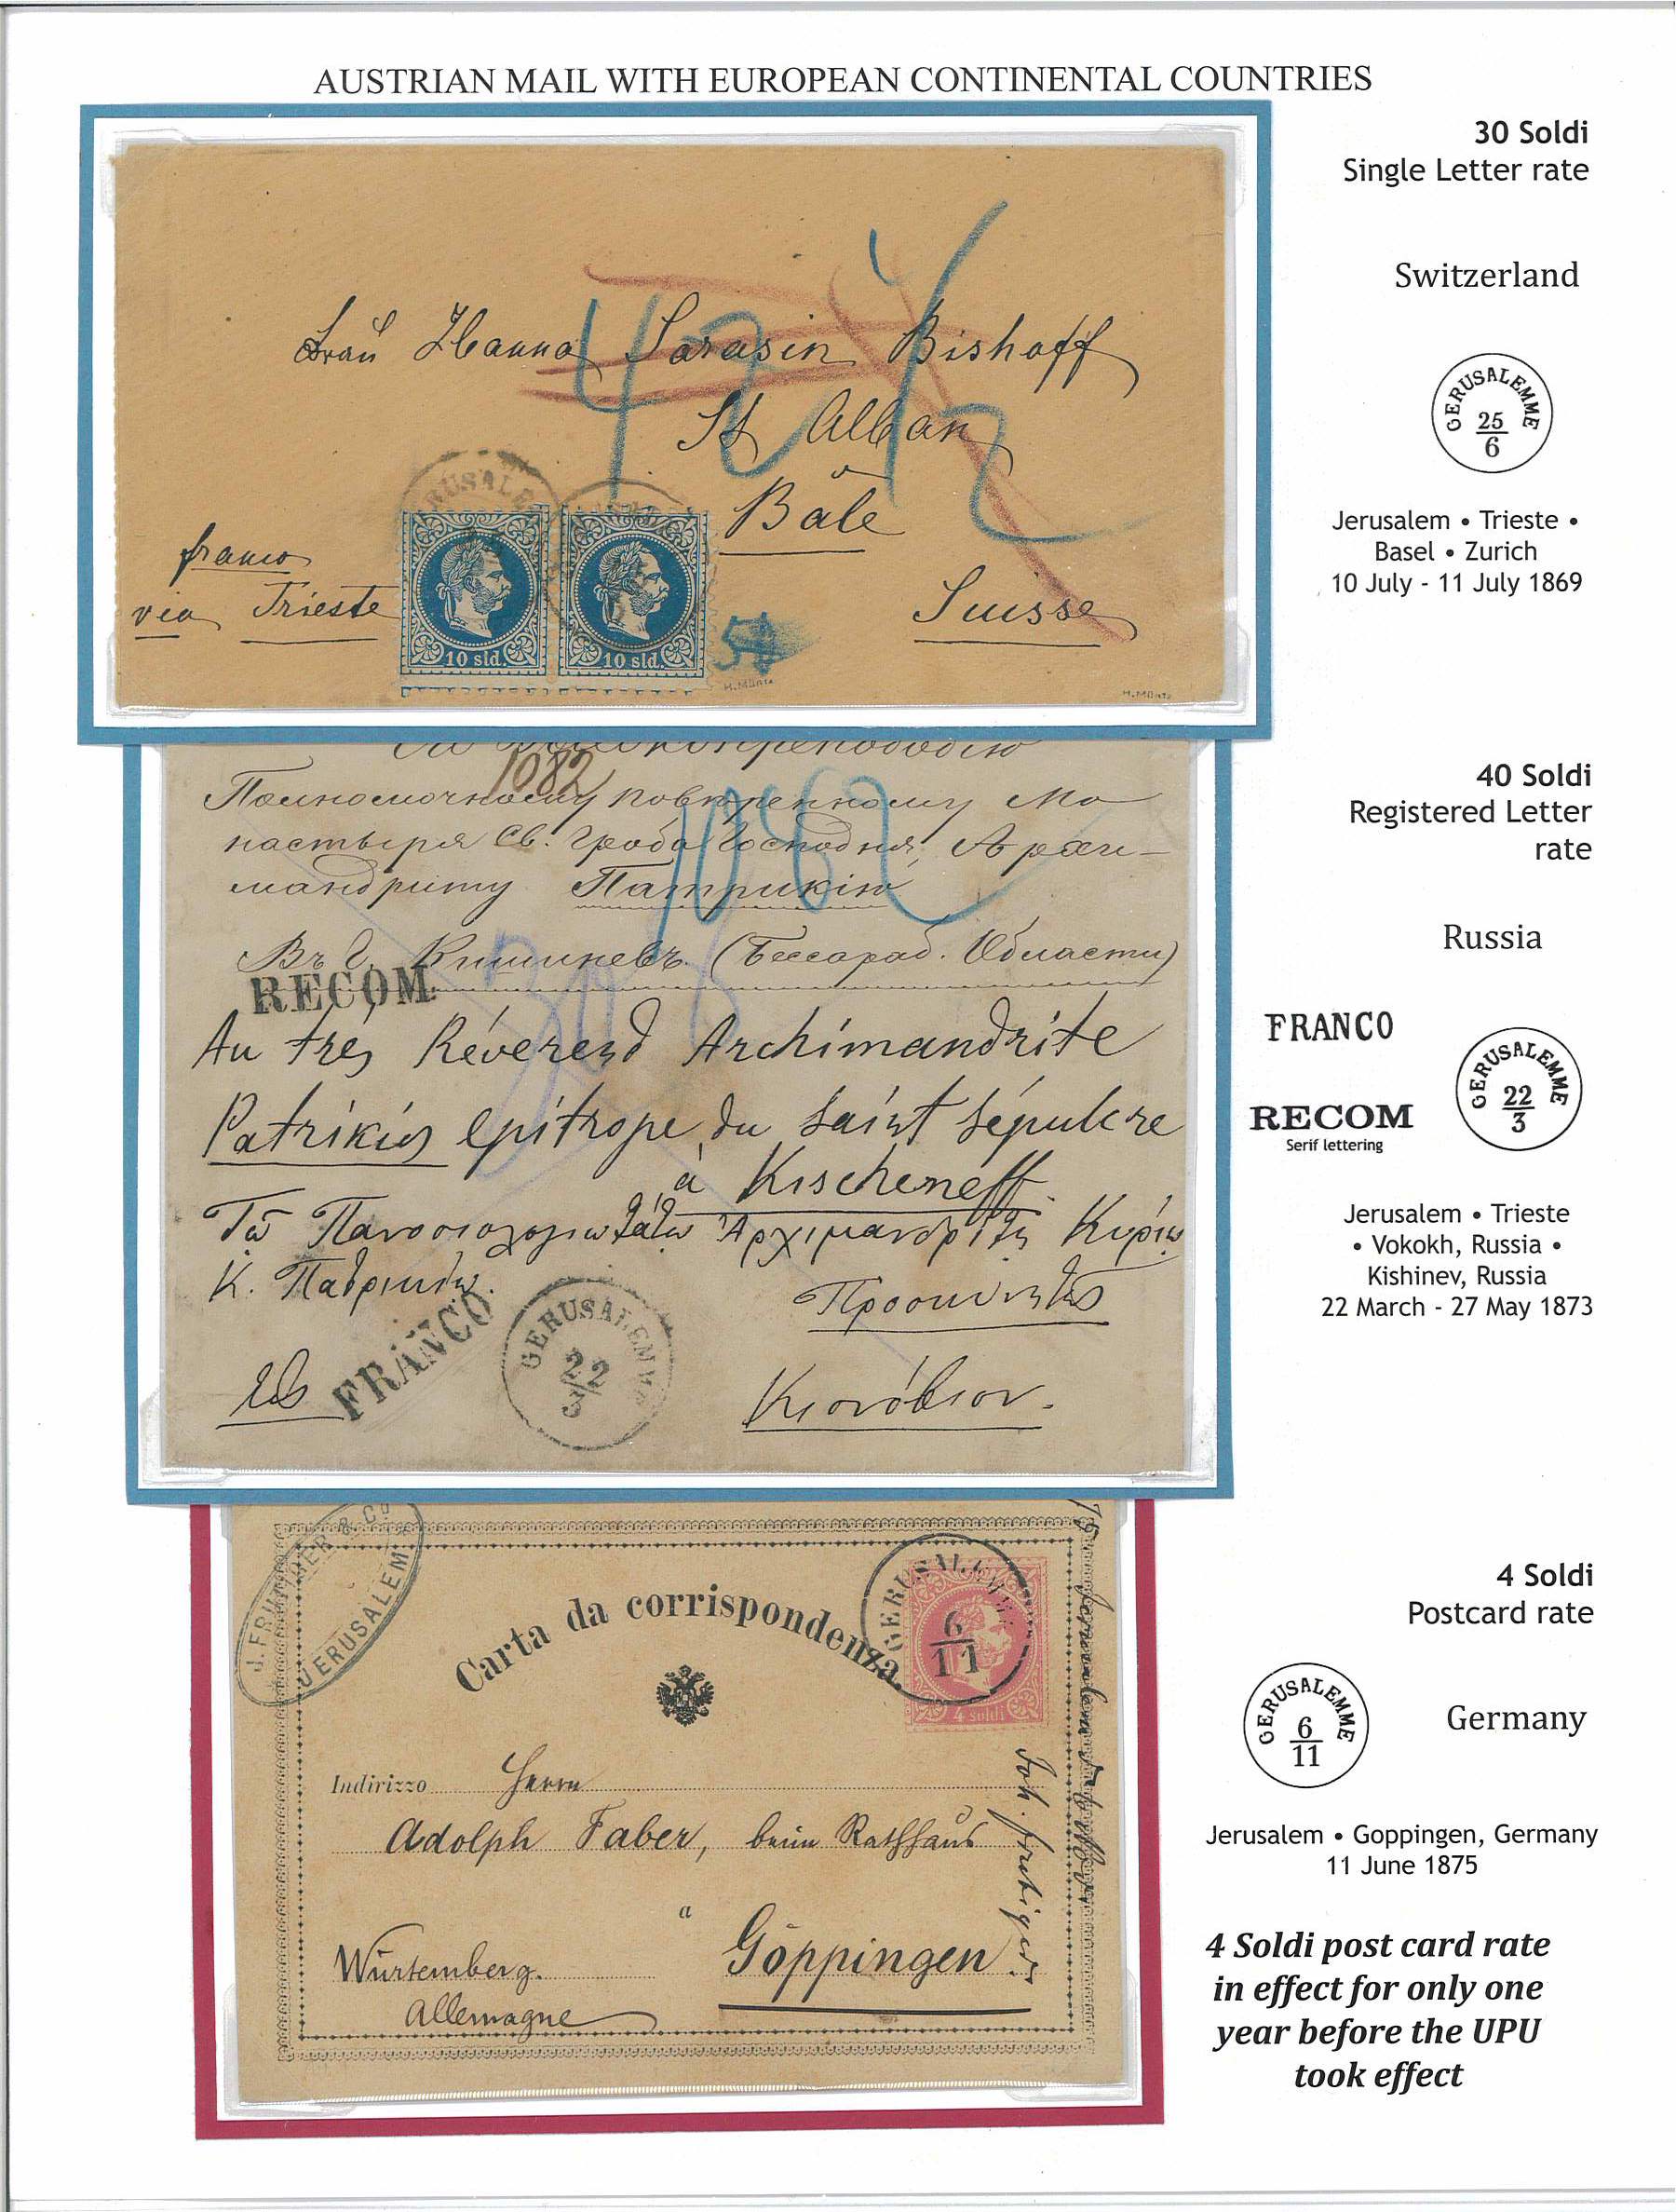 AUSTRIAN MAIL WITH EUROPEAN CONTINENTAL COUNTRIES
30 Soldi
Single Letter rate
Switzerland
GERUSALEMME
25
6
Jerusalem • Trieste •
Basel • Zurich
10 July - 11 July 1869
Frau Hanna Sarasin Bishoff
St Alban
Bâle
Suisse
franco
via Trieste
10 sld.
10 sld.
H.Müntz
H.Müntz
40 Soldi
Registered Letter
rate
Russia
FRANCO
RECOM
Serif lettering
GERUSALEMME
22
3
Jerusalem • Trieste
• Vokokh, Russia •
Kishinev, Russia
22 March - 27 May 1873
1082
Полномочному повѣренному Мо
настыря Св. Гроба Господня, Архи-
мандриту Патрикію
Въ г. Кишиневъ. (Бессараб. Области)
1042
RECOM.
Au très Révérend Archimandrite
Patrikios epitrope du Saint Sépulcre
à Kischeneff.
Τῷ Πανοσιολογιωτάτῳ Ἀρχιμανδρίτῃ Κυρίῳ
Κ. Πατρικίῳ.
FRANCO
GERUSALEMME
22
3
4 Soldi
Postcard rate
Germany
GERUSALEMME
6
11
Jerusalem • Goppingen, Germany
11 June 1875
4 Soldi post card rate
in effect for only one
year before the UPU
took effect
J. FRUTIGER & Co
JERUSALEM
Carta da corrispondenza.
GERUSALEMME
6
11
4 soldi
Indirizzo Herrn
Adolph Faber, beim Rathhaus
a Göppingen
Würtemberg.
Allemagne
Joh. Frutiger